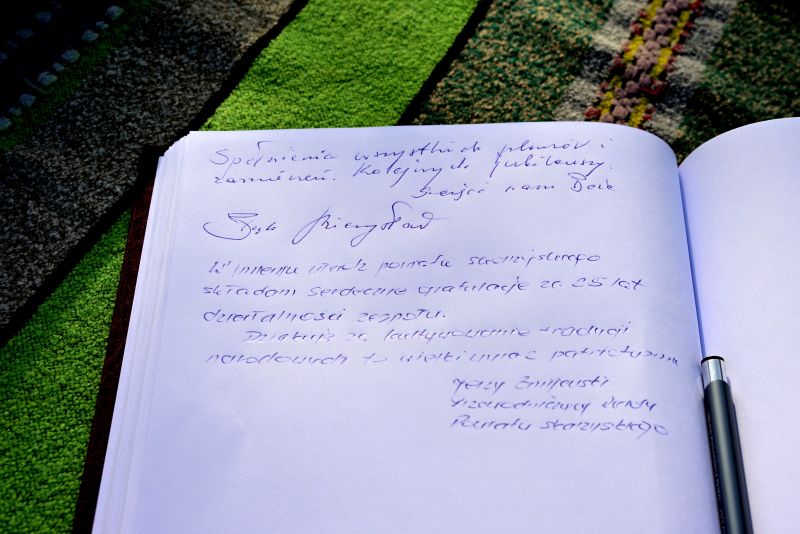 Spełnienia wszystkich planów i
zamierzeń. Kolejnych jubileuszy.
Szczęść nam Boże
Przemysław
W imieniu władz powiatu skarżyskiego
składam serdeczne gratulacje za 25 lat
działalności zespołu.
Dziękuję za kultywowanie tradycji
narodowych to wielki wyraz patriotyzmu
Jerzy Żmijewski
Przewodniczący Rady
Powiatu Skarżyskiego